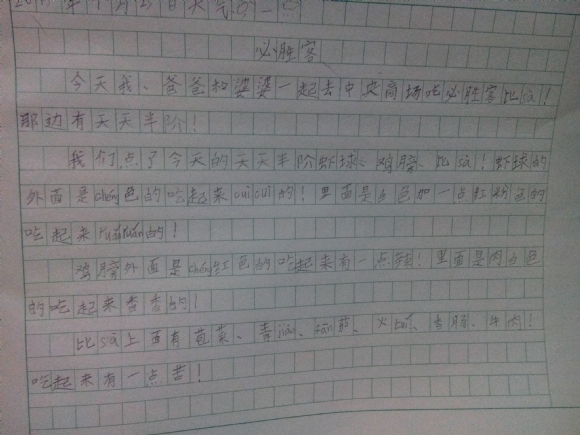 必胜客
今天我、爸爸和婆婆一起去中央商场吃必胜客比sà!
那边有天天半价!
我们点了今天的天天半价虾球、鸡膀、比sà!虾球的
外面是chéng色的吃起来cuìcuì的!里面是白色加一点红粉色的
吃起来ruǎnruǎn的!
鸡膀外面是chéng红色的吃起来有一点辣!里面是肉白色
的吃起来香香的!
比sà上面有菠菜、青jiāo、火tuǐ、香肠、牛肉!
吃起来有一点苦!